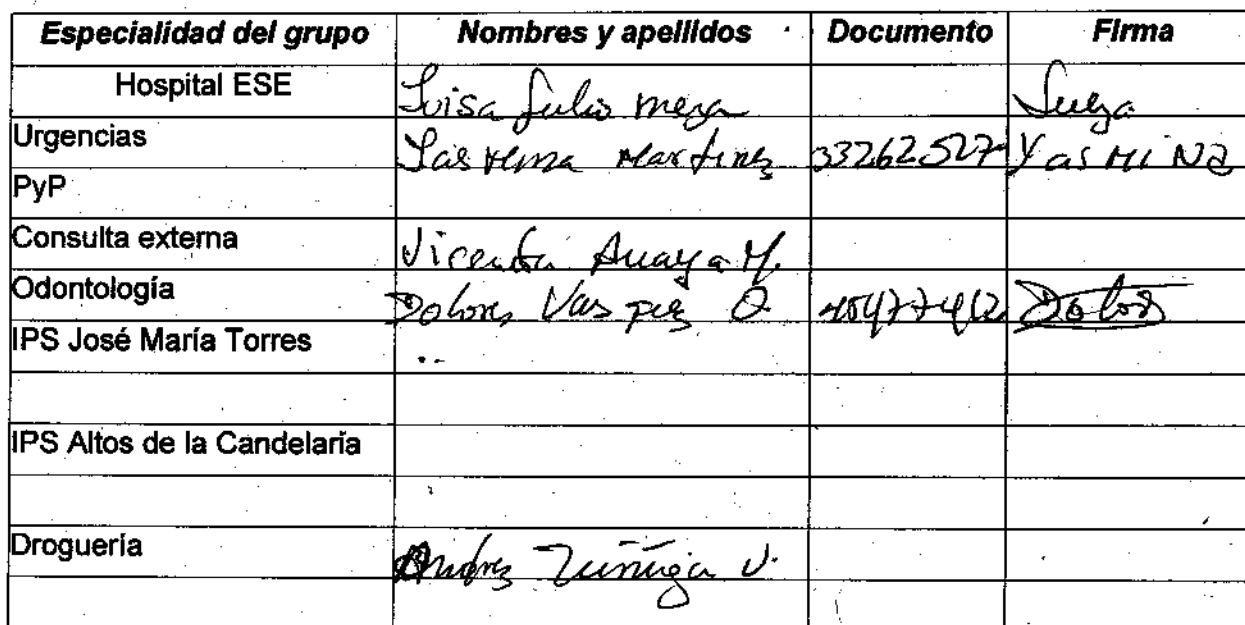 Especialidad del grupo Nombres y apellidos Documento Firma
Hospital ESE Luisa Julio meza
Urgencias Martinez 33262527 YasMiNa
PyP
Consulta externa Vicenta Anaya M.
Odontología Dolores Vasquez O
IPS José María Torres
IPS Altos de la Candelaria
Droguería Andres Zuñiga V.